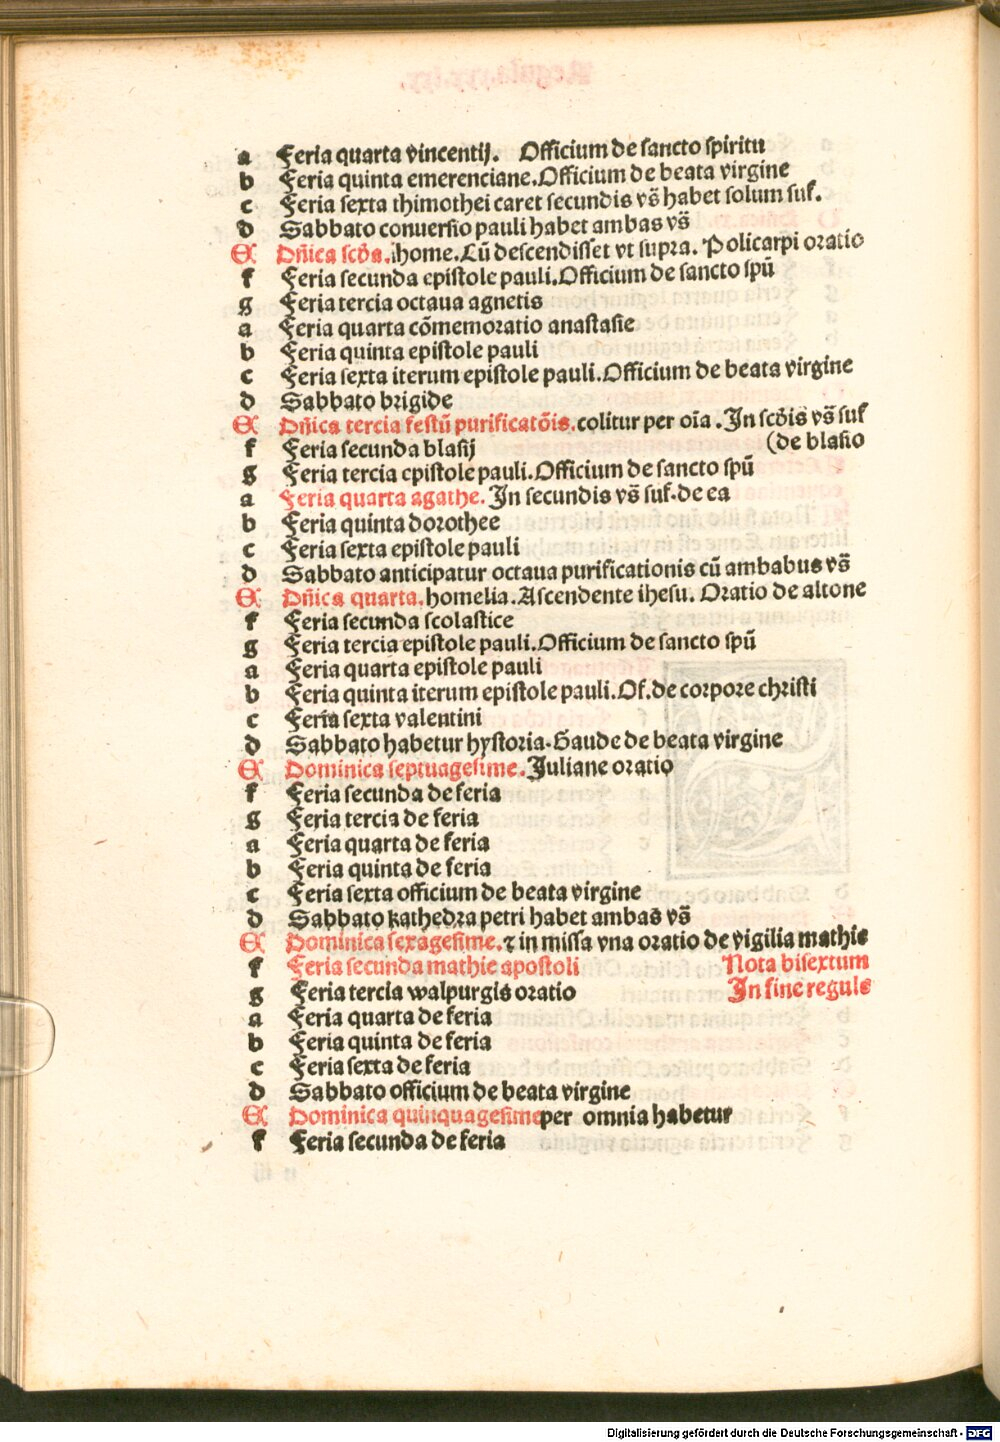 a Feria quarta vincentij. Officium de sancto spiritu
b Feria quinta emerenciane. Officium de beata virgine
c Feria sexta thimothei caret secundis vs̄ habet solum suf.
d Sabbato conuersio pauli habet ambas vs̄
E Dñica scđa. ihome. Cū descendisset vt supra. Policarpi oratio
f Feria secunda epistole pauli. Officium de sancto spū
g Feria tercia octaua agnetis
a Feria quarta cōmemoratio anastasie
b Feria quinta epistole pauli
c Feria sexta iterum epistole pauli. Officium de beata virgine
d Sabbato brigide
E Dñica tercia festū purificatōis. colitur per oīa. In scđis vs̄ suf
f Feria secunda blasij (de blasio
g Feria tercia epistole pauli. Officium de sancto spū
a Feria quarta agathe. In secundis vs̄ suf. de ea
b Feria quinta dorothee
c Feria sexta epistole pauli
d Sabbato anticipatur octaua purificationis cū ambabus vs̄
E Dñica quarta. homelia. Ascendente ihesu. Oratio de altone
f Feria secunda scolastice
g Feria tercia epistole pauli. Officium de sancto spū
a Feria quarta epistole pauli
b Feria quinta iterum epistole pauli. Of. de corpore christi
c Feria sexta valentini
d Sabbato habetur hystoria. Gaude de beata virgine
E Dominica septuagesime. Juliane oratio
f Feria secunda de feria
g Feria tercia de feria
a Feria quarta de feria
b Feria quinta de feria
c Feria sexta officium de beata virgine
d Sabbato kathedra petri habet ambas vs̄
E Dominica sexagesime. ⁊ in missa vna oratio de vigilia mathie
f Feria secunda mathie apostoli Nota bisextum
g Feria tercia walpurgis oratio In fine regule
a Feria quarta de feria
b Feria quinta de feria
c Feria sexta de feria
d Sabbato officium de beata virgine
E Dominica quinquagesime per omnia habetur
f Feria secunda de feria
Digitalisierung gefördert durch die Deutsche Forschungsgemeinschaft - DFG